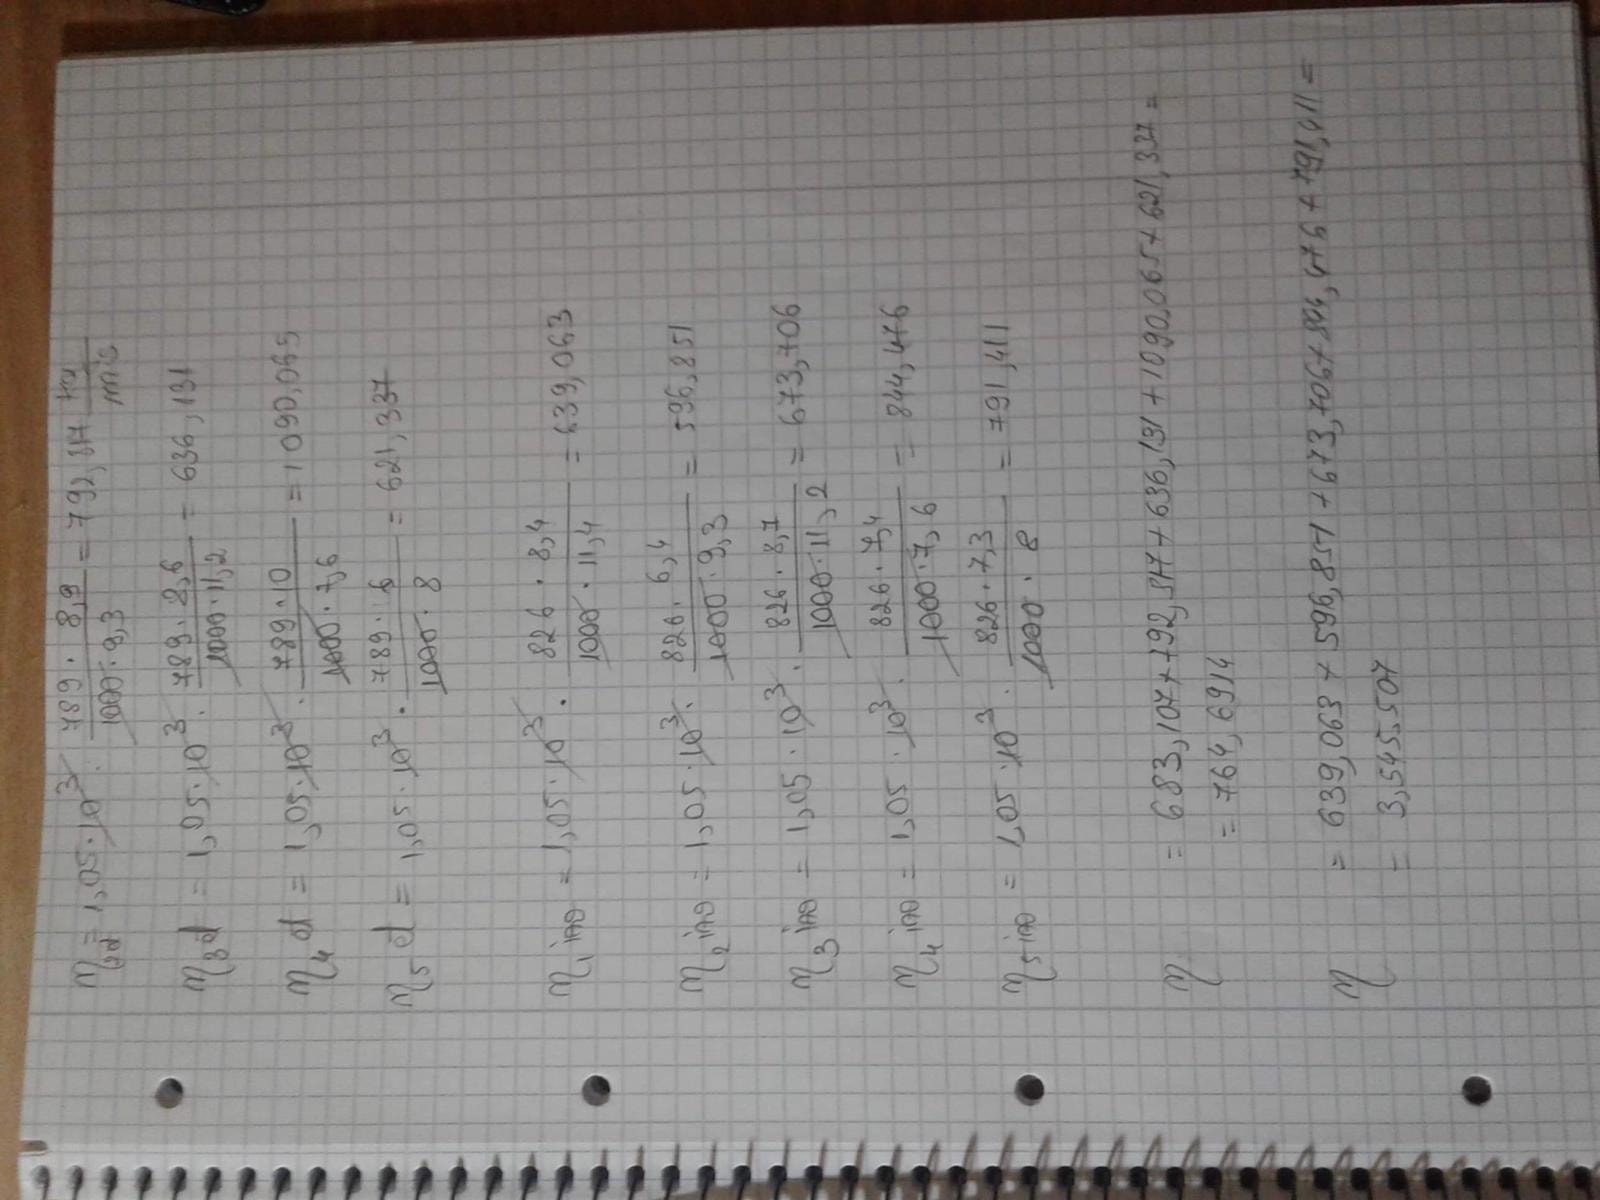 η2d = 1,05·10³ · 789·8,9 / 1000·9,3 = 792,817 kg / m·s
η3d = 1,05·10³ · 789·8,6 / 1000·11,2 = 636,131
η4d = 1,05·10³ · 789·10 / 1000·7,6 = 1090,065
η5d = 1,05·10³ · 789·6 / 1000·8 = 621,337
η1 izo = 1,05·10³ · 826·8,4 / 1000·11,4 = 639,063
η2 izo = 1,05·10³ · 826·6,4 / 1000·9,3 = 596,851
η3 izo = 1,05·10³ · 826·8,7 / 1000·11,2 = 673,706
η4 izo = 1,05·10³ · 826·7,4 / 1000·7,6 = 844,476
η5 izo = 1,05·10³ · 826·7,3 / 1000·8 = 791,411
η = 683,107+792,817+636,131+1090,065+621,337 =
= 764,6914
η = 639,063+596,851+673,706+844,476+791,411 =
= 3,545,507